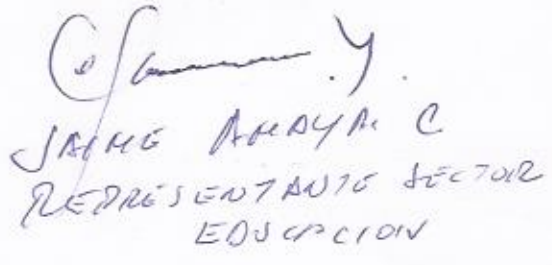 JAIME AMAYA C
REPRESENTANTE SECTOR
EDUCACION